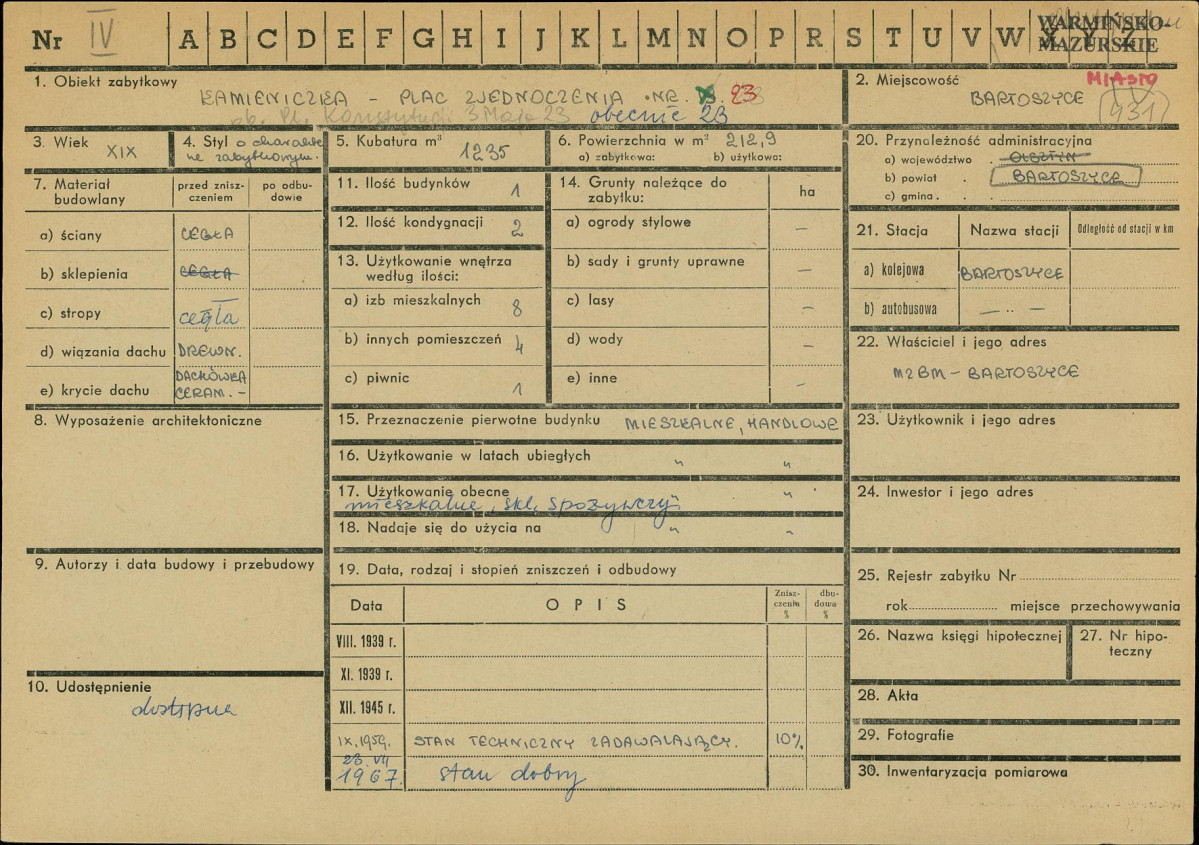 Nr IV A B C D E F G H I J K L M N O P R S T U V W X Y Z
WARMIŃSKO-
MAZURSKIE
1. Obiekt zabytkowy
KAMIENICZKA – PLAC ZJEDNOCZENIA NR. 23
pl. Konstytucji 3 Maja 23 obecnie 23
2. Miejscowość
MIASTO
BARTOSZYCE
931
3. Wiek XIX
4. Styl o charakte
rze zabytkowym.
5. Kubatura m³ 1235
6. Powierzchnia w m² 212,9
a) zabytkowa: b) użytkowa:
20. Przynależność administracyjna
a) województwo OLSZTYN
b) powiat BARTOSZYCE
c) gmina
7. Materiał budowlany
przed znisz-
czeniem
po odbu-
dowie
a) ściany CEGŁA
b) sklepienia CEGŁA
c) stropy cegła
d) wiązania dachu DREWN.
e) krycie dachu DACHÓWKA
CERAM. –
11. Ilość budynków 1
12. Ilość kondygnacji 2
13. Używkowanie wnętrza
według ilości:
a) izb mieszkalnych 8
b) innych pomieszczeń 4
c) piwnic 1
14. Grunty należące do
zabytku:
ha
a) ogrody stylowe –
b) sady i grunty uprawne –
c) lasy –
d) wody –
e) inne –
21. Stacja Nazwa stacji Odległość od stacji w km
a) kolejowa BARTOSZYCE
b) autobusowa — „ —
22. Właściciel i jego adres
MZBM – BARTOSZYCE
8. Wyposażenie architektoniczne
15. Przeznaczenie pierwotne budynku MIESZKALNE, HANDLOWE
16. Użytkowanie w latach ubiegłych „ „
17. Użytkowanie obecne „ „
mieszkalne, skl. spożywczy
18. Nadaje się do użycia na „ „
23. Użytkownik i jego adres
24. Inwestor i jego adres
9. Autorzy i data budowy i przebudowy
19. Data, rodzaj i stopień zniszczeń i odbudowy
Data OPIS Znisz-
czenia
%
dbu-
dowa
%
VIII. 1939 r.
XI. 1939 r.
XII. 1945 r.
IX.1959. STAN TECHNICZNY ZADAWALAJĄCY. 10%
23. VII
1967. stan dobry
10. Udostępnienie
dostępna
25. Rejestr zabytku Nr
rok miejsce przechowywania
26. Nazwa księgi hipotecznej
27. Nr hipo-
teczny
28. Akta
29. Fotografie
30. Inwentaryzacja pomiarowa